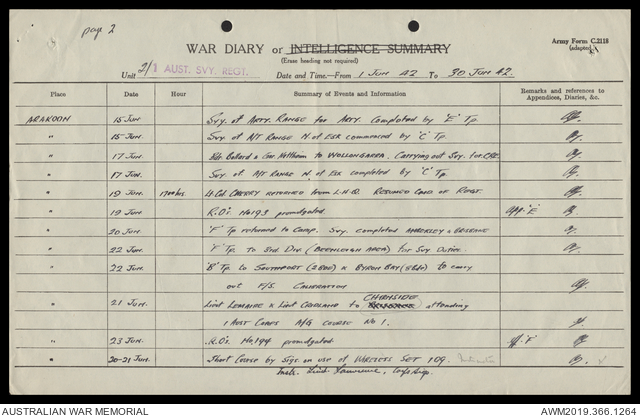 page 2
WAR DIARY or INTELLIGENCE SUMMARY
(Erase heading not required)
Army Form C.2118
(adapted)
Unit 2/1 AUST. SVY. REGT. Date and Time—From 1 JUN 42 To 30 JUN 42.
Place Date Hour Summary of Events and Information Remarks and references to Appendices, Diaries, &c.
ARAKOON 15 JUN. Svy. of ARTY. RANGE for ARTY. Completed by 'E' Tp.
" 15 JUN. Svy. of A/T RANGE N. of ESK commenced by 'C' Tp.
" 17 JUN. Bdr. Ballard & Gnr. to WOLLONGARRA. Carrying out Svy. for CRE.
" 17 JUN. Svy. of A/T RANGE N. of ESK completed by 'C' Tp.
" 19 JUN. 1700 hrs. Lt-Col. CHERRY returned from L.H.Q. Resumed Comd. of REGT.
" 19 JUN. R.O's No 193 promulgated. App. 'E'
" 20 JUN. 'F' Tp returned to Camp. Svy. completed AMBERLEY & BRISBANE
" 22 JUN. 'F' Tp. to 3rd. Div. (BEENLEIGH AREA) for Svy Duties.
" 22 JUN. 'B' Tp. to SOUTHPORT & BYRON BAY to carry
out F/S. CALIBRATION
" 21 JUN. Lieut LEMAIRE & Lieut to CHERMSIDE attending
1 AUST CORPS A/G COURSE No 1.
" 23 JUN. R.O's No 194 promulgated. App. 'F'
" 20-21 JUN. Short Course by Sigs on use of WIRELESS SET 109.
Instr. Lieut. Lawrence,
AUSTRALIAN WAR MEMORIAL AWM2019.366.1264